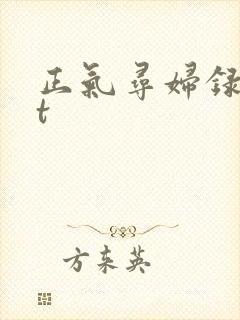 正氣尋婦録
t
方东英